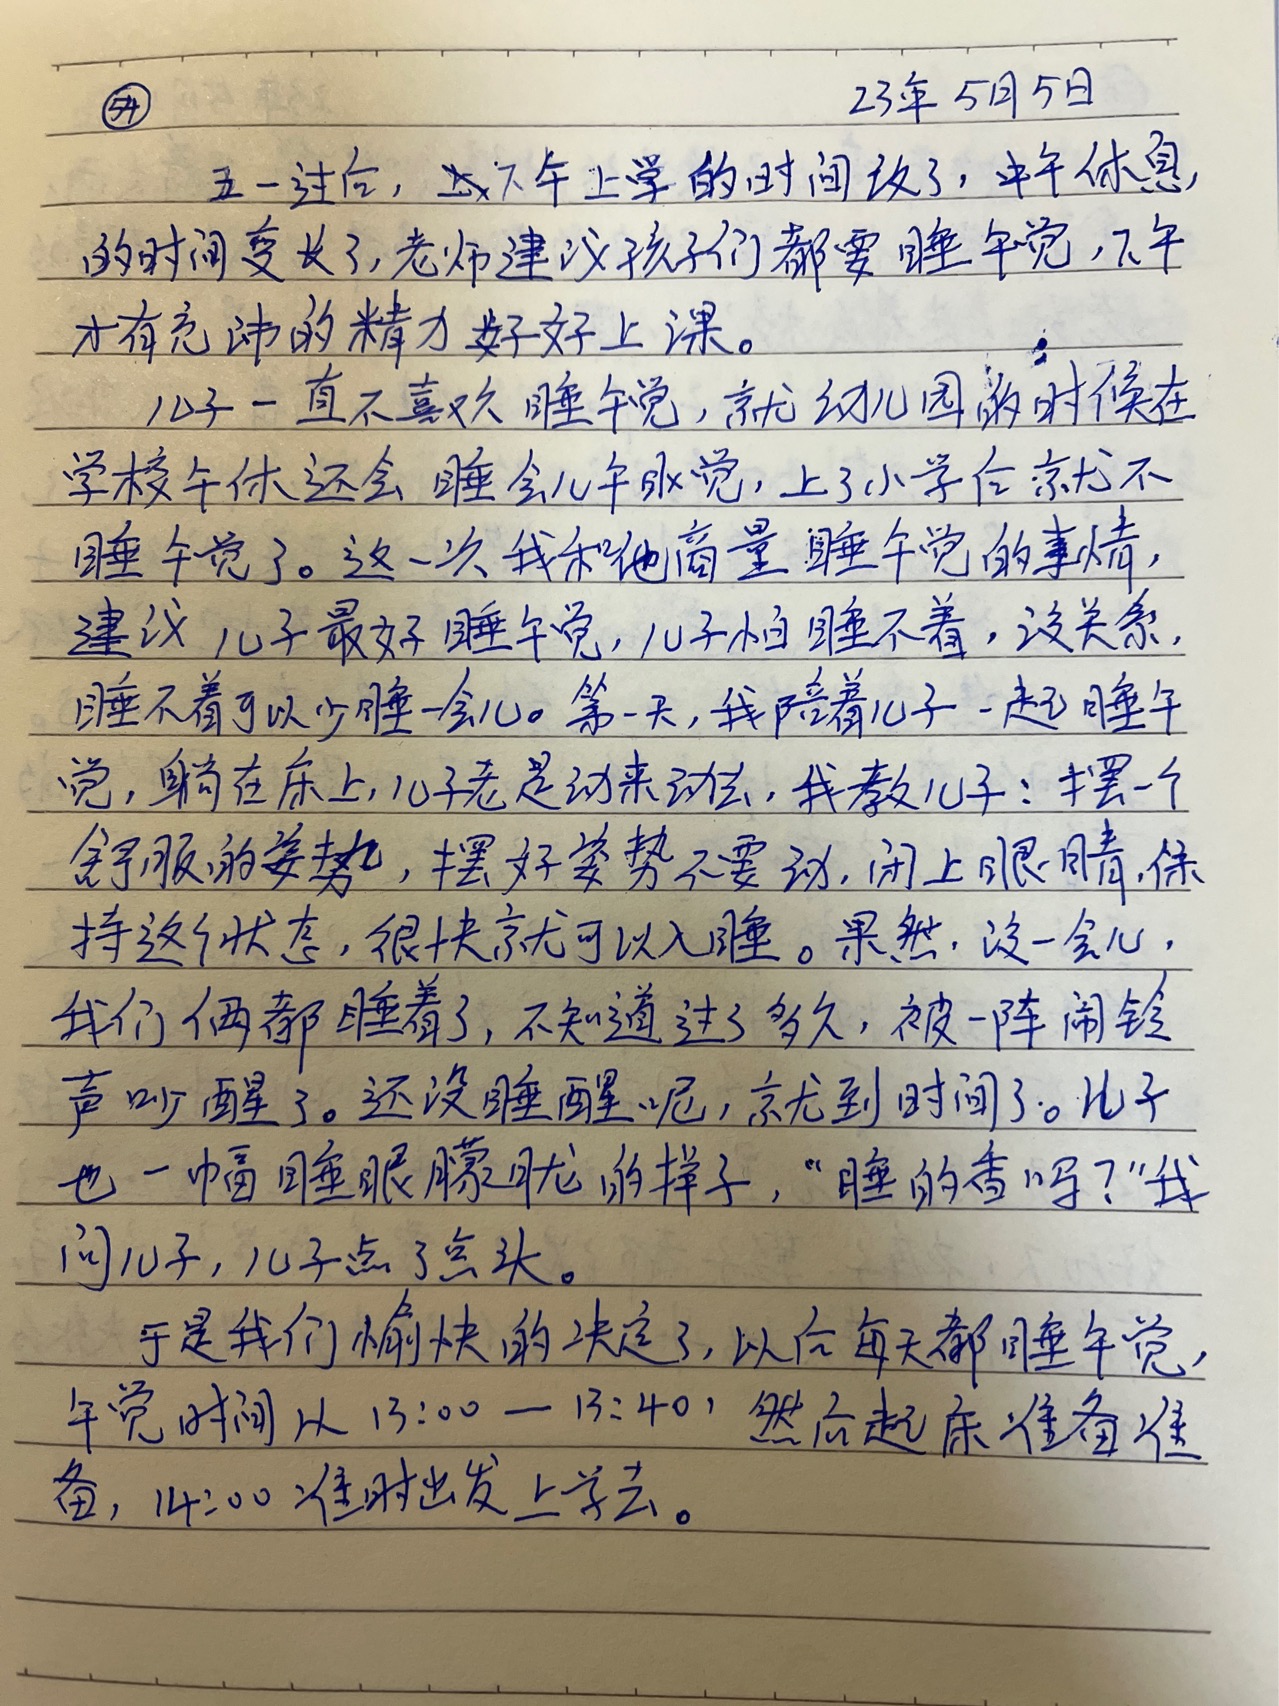 54
23年5月5日
五一过后，下午上学的时间改了，中午休息，
的时间变长了，老师建议孩子们都要睡午觉，下午
才有充沛的精力好好上课。
儿子一直不喜欢睡午觉，就幼儿园的时候在
学校午休还会睡会儿午觉，上了小学后就不
睡午觉了。这一次我和他商量睡午觉的事情，
建议儿子最好睡午觉，儿子怕睡不着，没关系，
睡不着可以少睡一会儿。第一天，我陪着儿子一起睡午
觉，躺在床上，儿子老是动来动去，我教儿子：摆一个
舒服的姿势，摆好姿势不要动，闭上眼睛，保
持这个状态，很快就可以入睡。果然，没一会儿，
我们俩都睡着了，不知道过了多久，被一阵闹铃
声吵醒了。还没睡醒呢，就到时间了。儿子
也一幅睡眼朦胧的样子，“睡的香吗？”我
问儿子，儿子点了点头。
于是我们愉快的决定了，以后每天都睡午觉，
午觉时间从13:00—13:40，然后起床准备准
备，14:00准时出发上学去。